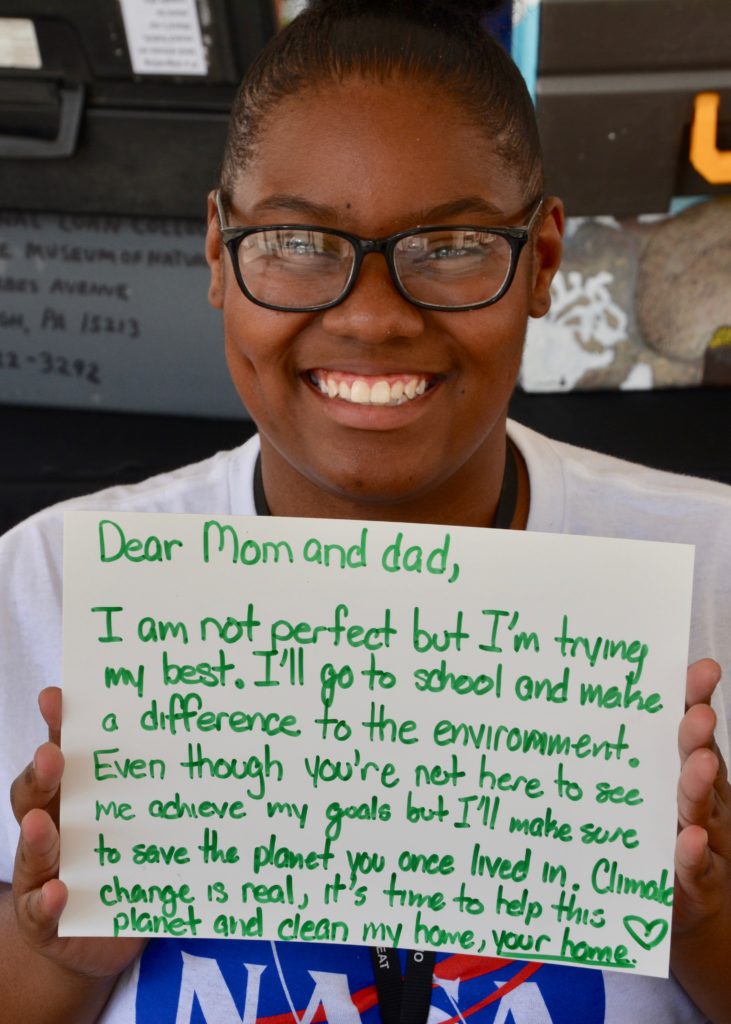 NAL LOAN COLLEC
E MUSEUM OF NATU
RBES AVENUE
GH, PA 15213
22-3292
Dear Mom and dad,
I am not perfect but I'm trying
my best. I'll go to school and make
a difference to the enviromment.
Even though you're not here to see
me achieve my goals but I'll make sure
to save the planet you once lived in. Climate
change is real, it's time to help this
planet and clean my home, your home.
EAT
NASA